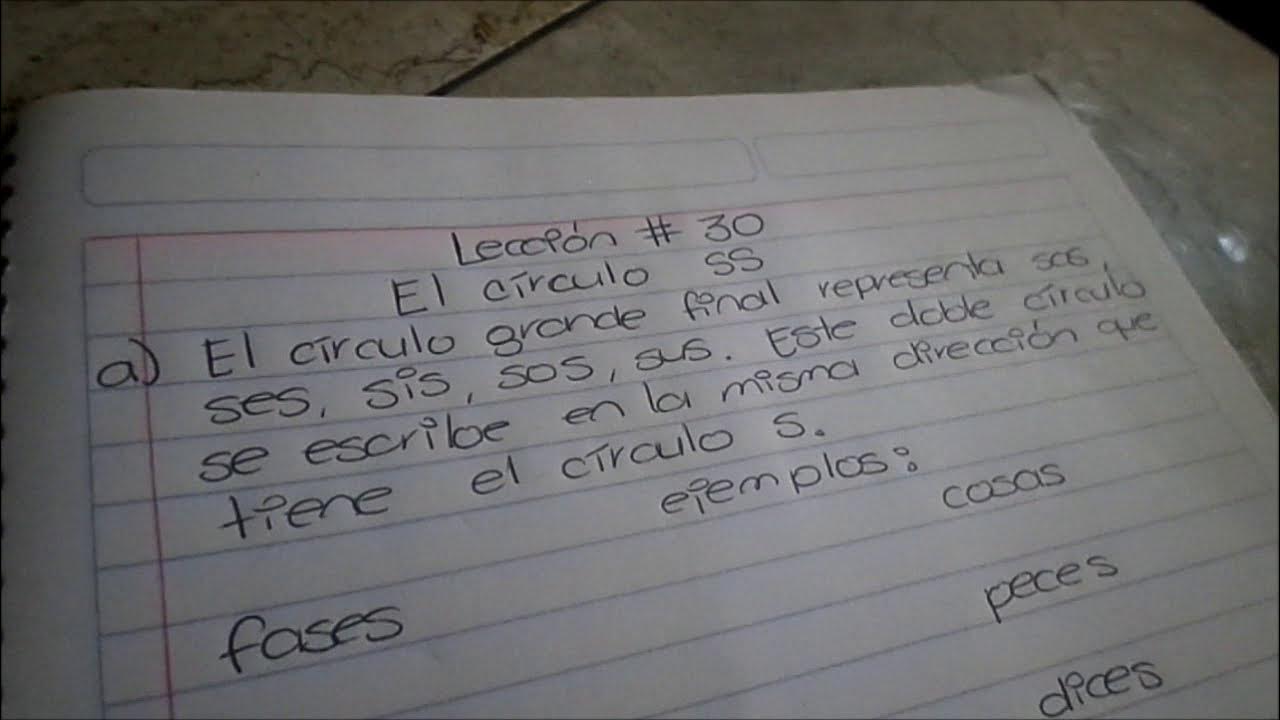 Lección # 30
El círculo SS
a) El círculo grande final representa sas,
ses, sis, sos, sus. Este doble círculo
se escribe en la misma dirección que
tiene el círculo S.
ejemplos:
cosas
fases
peces
dices